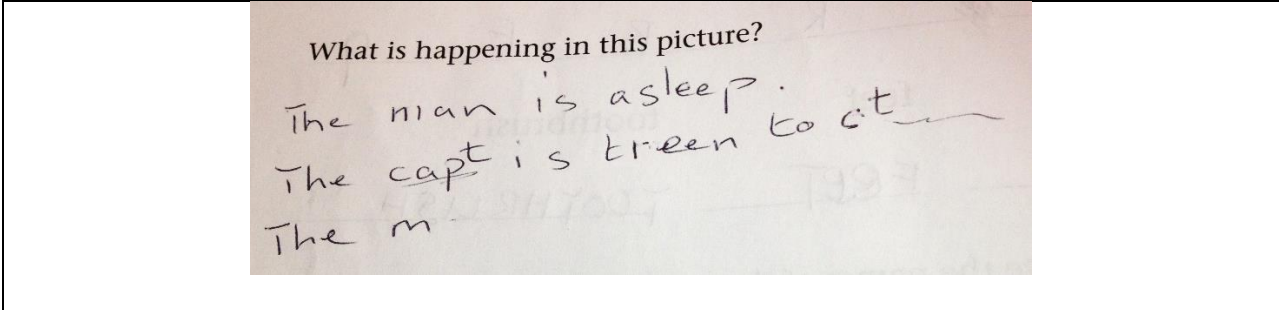 What is happening in this picture?
The man is asleep.
The capt is treen to cit
The m